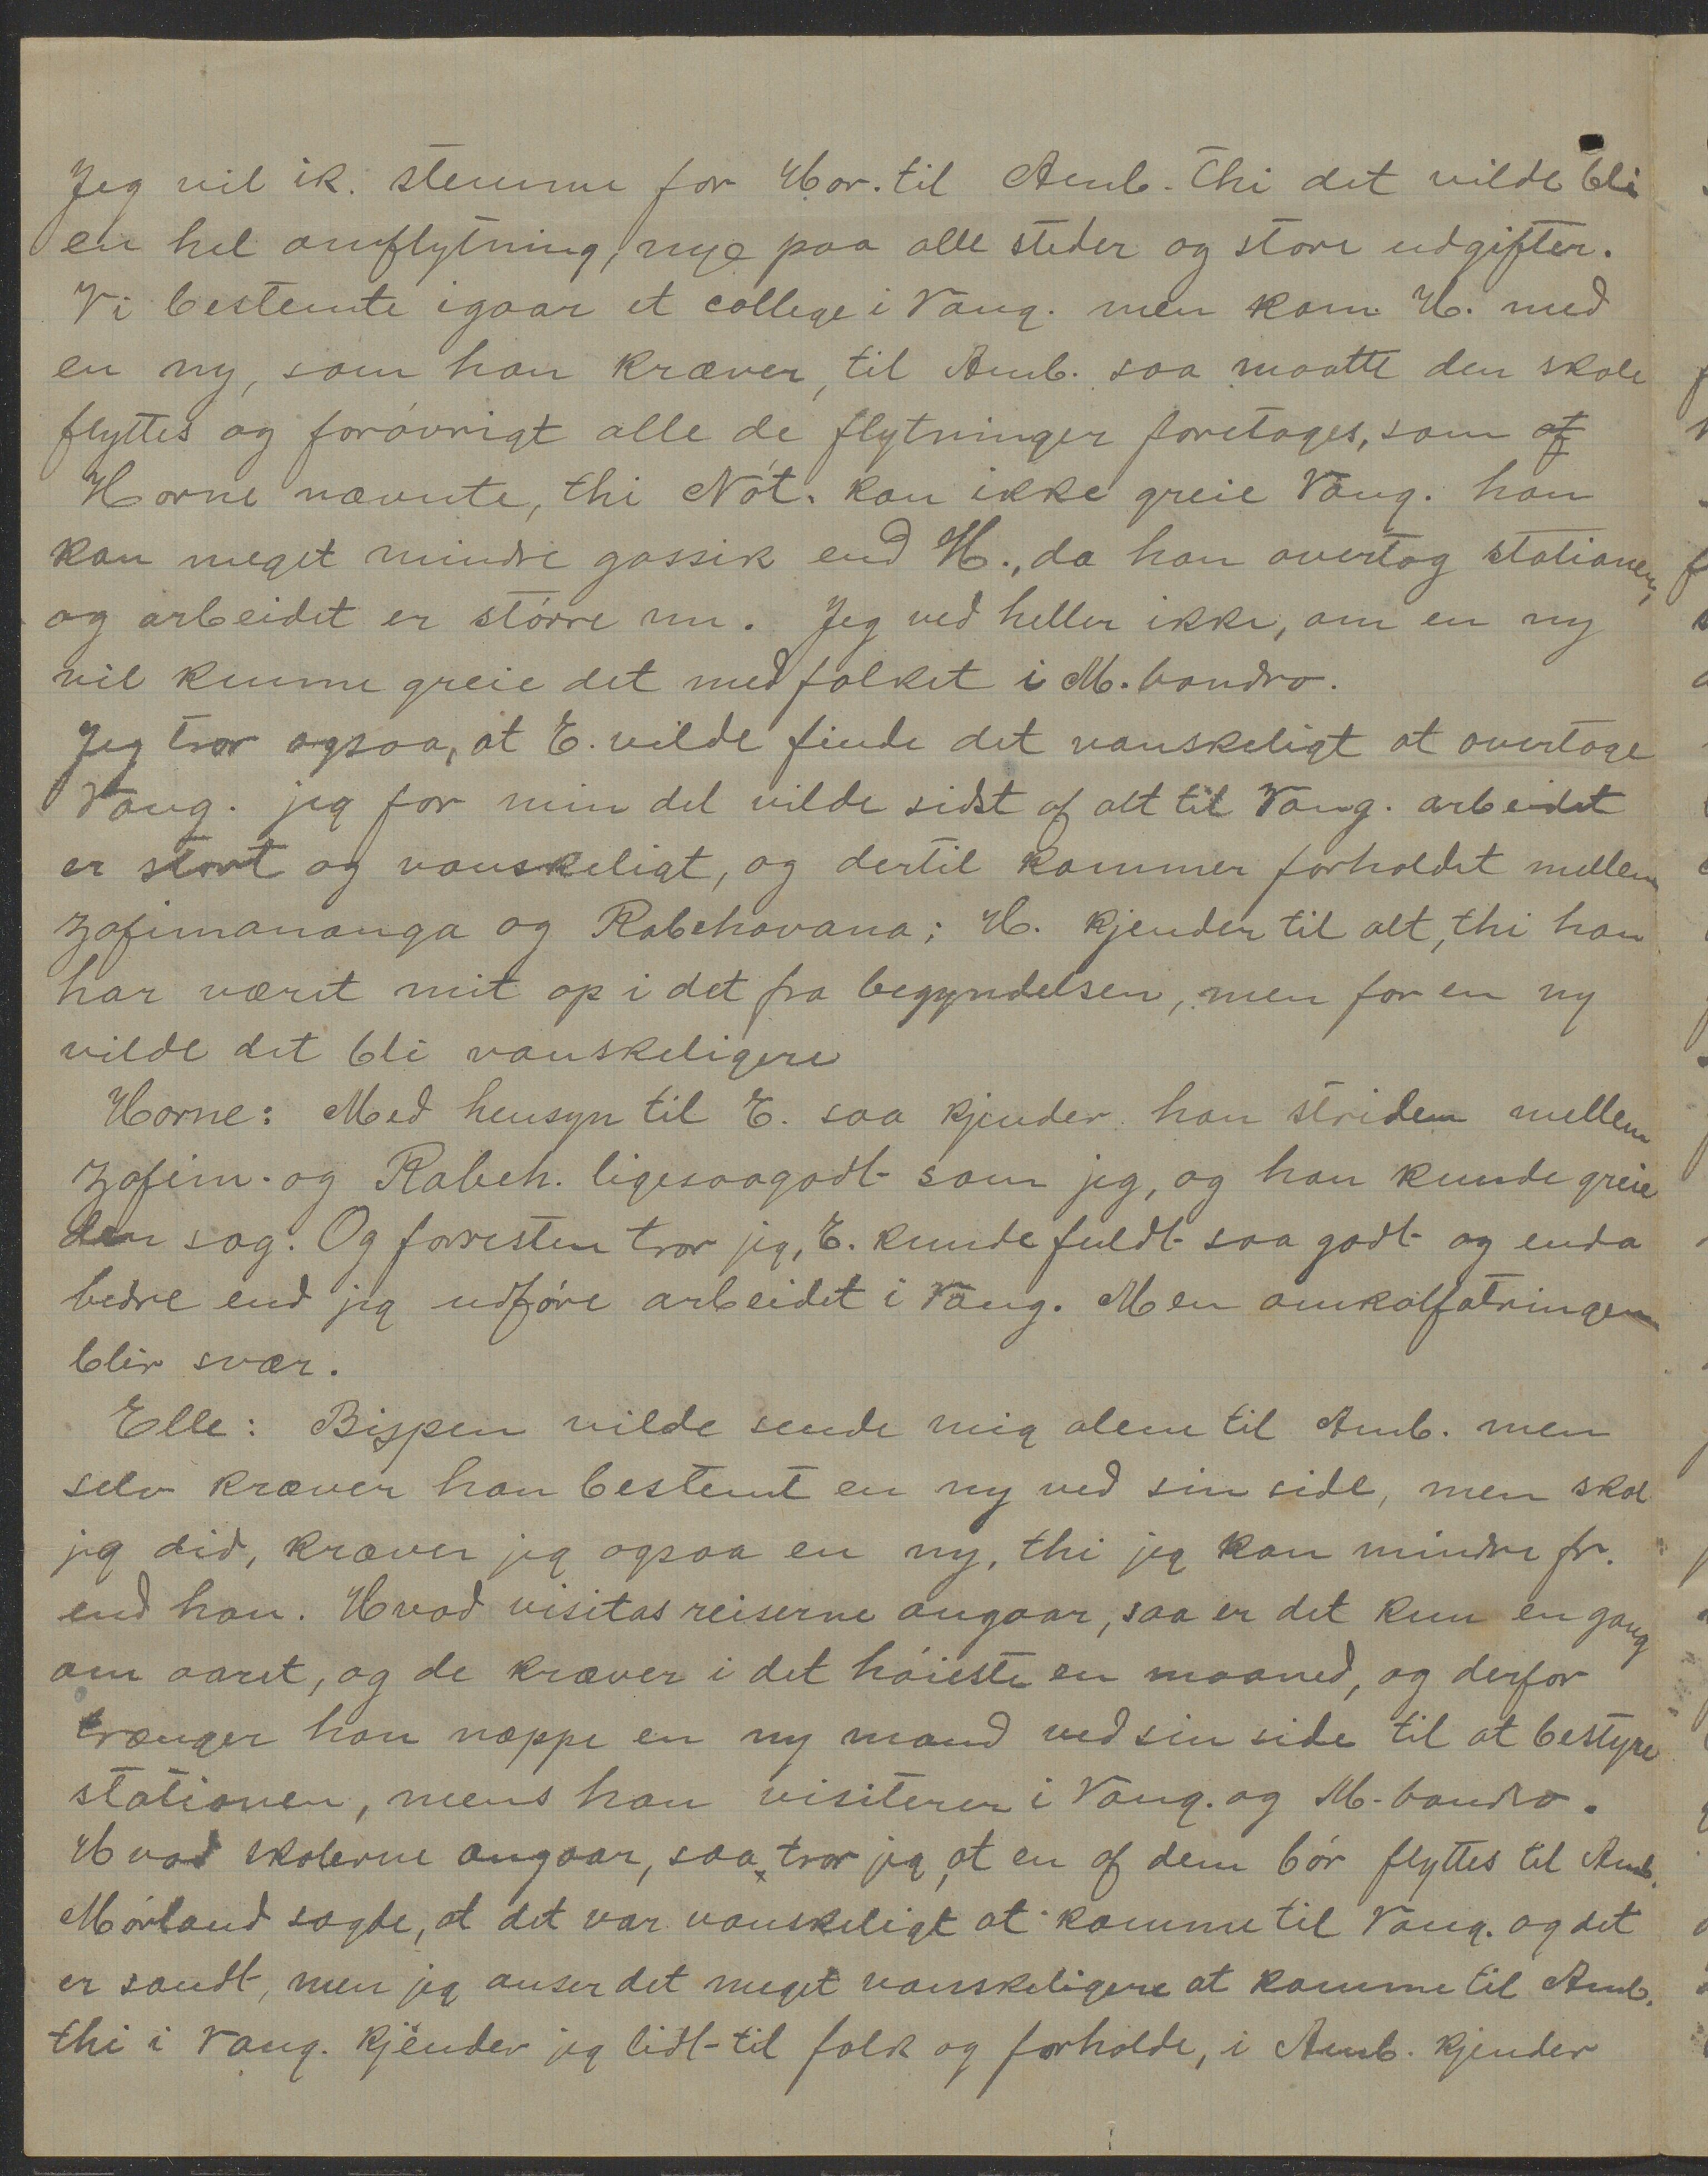 Jeg vil ik. stemme for Hor. til Amb. Thi det vilde bli
en hel omflytning, nye paa alle steder og store udgifter.
Vi bestemte igaar et college i Vang. men kom H. med
en ny, som han kræver, til Amb. saa maatte den skole
flyttes og forøvrigt alle de flytninger foretages, som af
Horne nævnte, thi Nøt. kan ikke greie Vang. han
kan meget mindre gassisk end H., da han overtog stationen,
og arbeidet er større nu. Jeg ved heller ikke, om en ny
vil kunne greie det med folket i M.bondro.
Jeg tror ogsaa, at E. vilde finde det vanskeligt at overtage
Vang. jeg for min del vilde sidst af alt til Vang. arbeidet
er stort og vanskeligt, og dertil kommer forholdet mellem
Zafimananga og Rabehavana; H. kjender til alt, thi han
har været mit op i det fra begyndelsen, men for en ny
vilde det bli vanskeligere
Horne: Med hensyn til E. saa kjender han striden mellem
Zafim. og Rabeh. ligesaagodt som jeg, og han kunde greie
den sag. Og forresten tror jeg, E. kunde fuldt saa godt og enda
bedre end jeg udføre arbeidet i Vang. Men omkalfatringen
blir svær.
Elle: Bispen vilde sende mig alene til Amb. men
selv kræver han bestemt en ny ved sin side, men skal
jeg did, kræver jeg ogsaa en ny, thi jeg kan mindre fr.
end han. Hvad visitasreiserne angaar, saa er det kun en gang
om aaret, og de kræver i det høieste en maaned, og derfor
trænger han næppe en ny mand ved sin side til at bestyre
stationen, mens han visiterer i Vang. og M-bondro.
Hvad skolerne angaar, saa tror jeg, at en af dem bør flyttes til Amb.
Mørland sagde, at det var vanskeligt at komme til Vang. og det
er sandt, men jeg anser det meget vanskeligere at komme til Amb.
thi i Vang. kjender jeg lidt til folk og forholde, i Amb. kjender